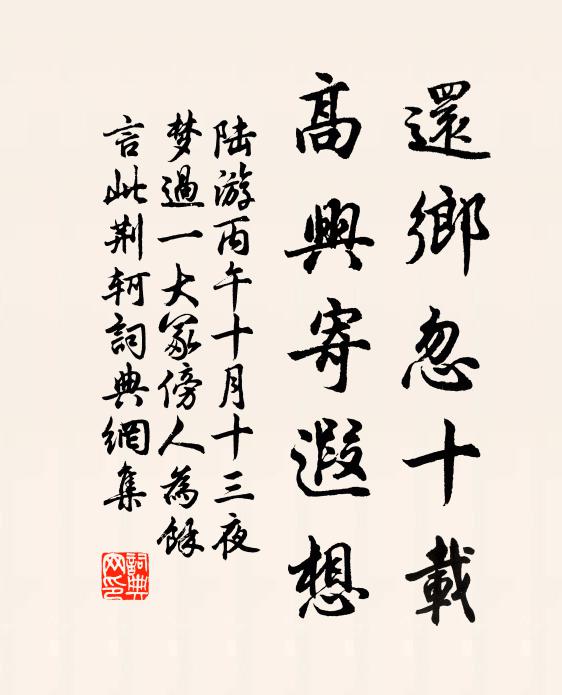 還鄉忽十載
高興寄遐想
陆游丙午十月十三夜
梦過一大冢傍人為餘
言此荆轲詞典網集
詞典
网印